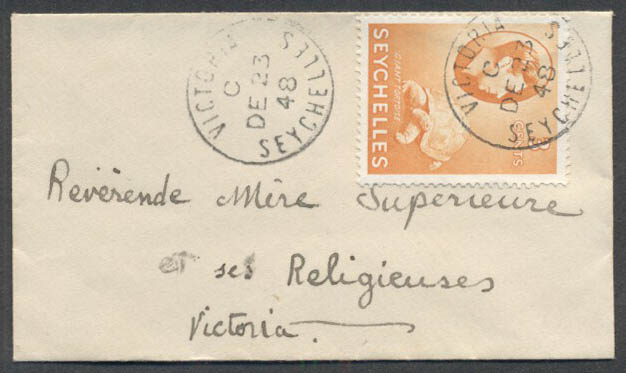 VICTORIA
C
DE 23
48
SEYCHELLES
SEYCHELLES
GIANT TORTOISE
CENTS
VICTORIA
C
DE 23
48
SEYCHELLES
Révérende Mère Superieure
et ses Religieuses
Victoria.